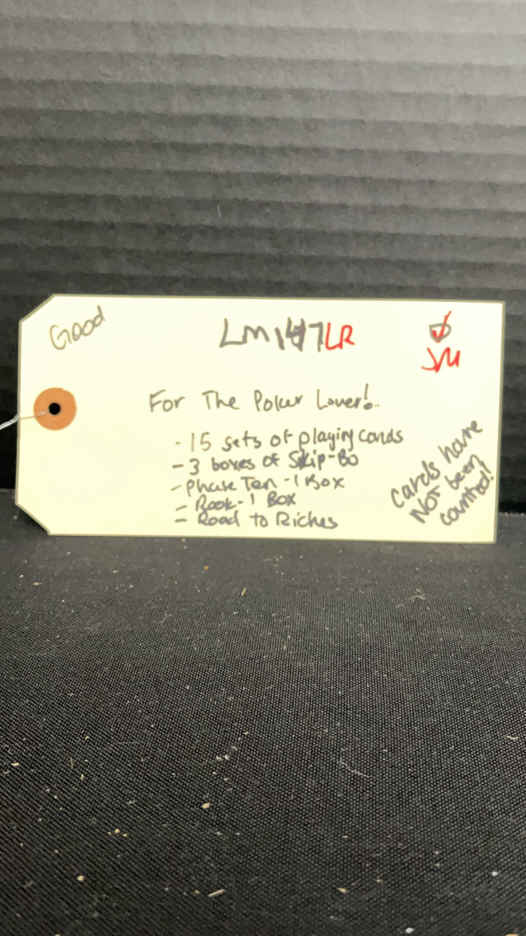 Good
LM147LR
JM
For The Poker Lover!
- 15 sets of playing cards
- 3 boxes of Skip-Bo
- Phase Ten - 1 Box
- Rook - 1 Box
- Road to Riches
Cards have
NOT been
counted!